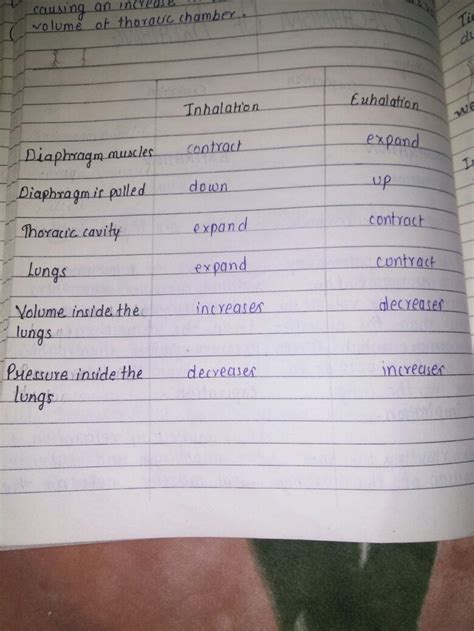 causing an increase in
volume of thoracic chamber.
Inhalation Exhalation
Diaphragm muscles contract expand
Diaphragm is pulled down up
Thoracic cavity expand contract
Lungs expand contract
Volume inside the increases decreases
lungs
Pressure inside the decreases increases
lungs